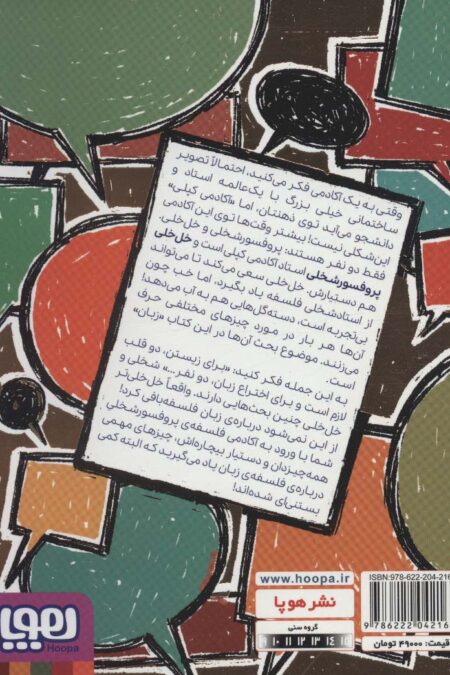 وقتی به یک آکادمی فکر می‌کنید، احتمالاً تصویر
ساختمانی خیلی بزرگ با یک‌عالمه استاد و
دانشجو می‌آید توی ذهنتان، اما «آکادمی کیلی»
این‌شکلی نیست! بیشتر وقت‌ها توی این آکادمی
فقط دو نفر هستند: پروفسورشخلی و خل‌خلی.
پروفسورشخلی استاد آکادمی کیلی است و خل‌خلی
هم دستیارش. خل‌خلی سعی می‌کند تا می‌تواند
از استادشخلی فلسفه یاد بگیرد، اما خب چون
بی‌تجربه است، دسته‌گل‌هایی هم به آب می‌دهد!
آن‌ها هر بار در مورد چیزهای مختلفی حرف
می‌زنند. موضوع بحث آن‌ها در این کتاب «زبان»
است.
به این جمله فکر کنید: «برای زیستن، دو قلب
لازم است و برای اختراع زبان، دو نفر...» شخلی و
خل‌خلی چنین بحث‌هایی دارند. واقعاً خل‌خلی‌تر
از این نمی‌شود درباره‌ی زبان فلسفه‌بافی کرد!
شما با ورود به آکادمی فلسفه‌ی پروفسورشخلی
همه‌چیزدان و دستیار بیچاره‌اش، چیزهای مهمی
درباره‌ی فلسفه‌ی زبان یاد می‌گیرید که البته کمی
بستنی‌ای شده‌اند!
www.hoopa.ir
نشر هوپا
گروه سنی
۹ ۱۰ ۱۱ ۱۲ ۱۳ ۱۴ ۱۵
ISBN:978-622-204-216
9 786222 04216
قیمت: ۴۹۰۰۰ تومان
هوپا
Hoopa